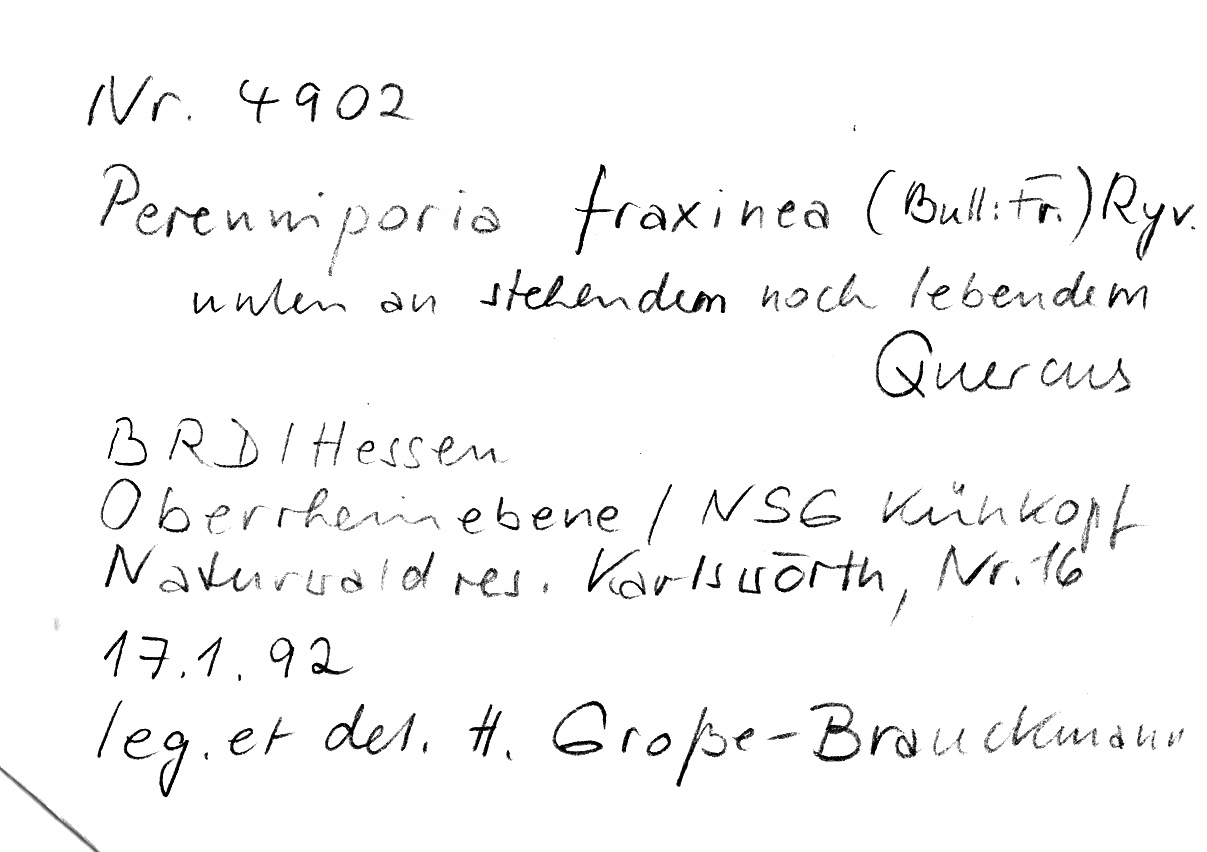 Nr. 4902
Perenniporia fraxinea (Bull.: Fr.) Ryv.
unten an stehendem noch lebendem
Quercus
BRD/Hessen
Oberrheinebene / NSG Kühkopf
Naturwaldres. Karlswörth, Nr. 16
17.1.92
leg. et det. H. Große-Brauckmann